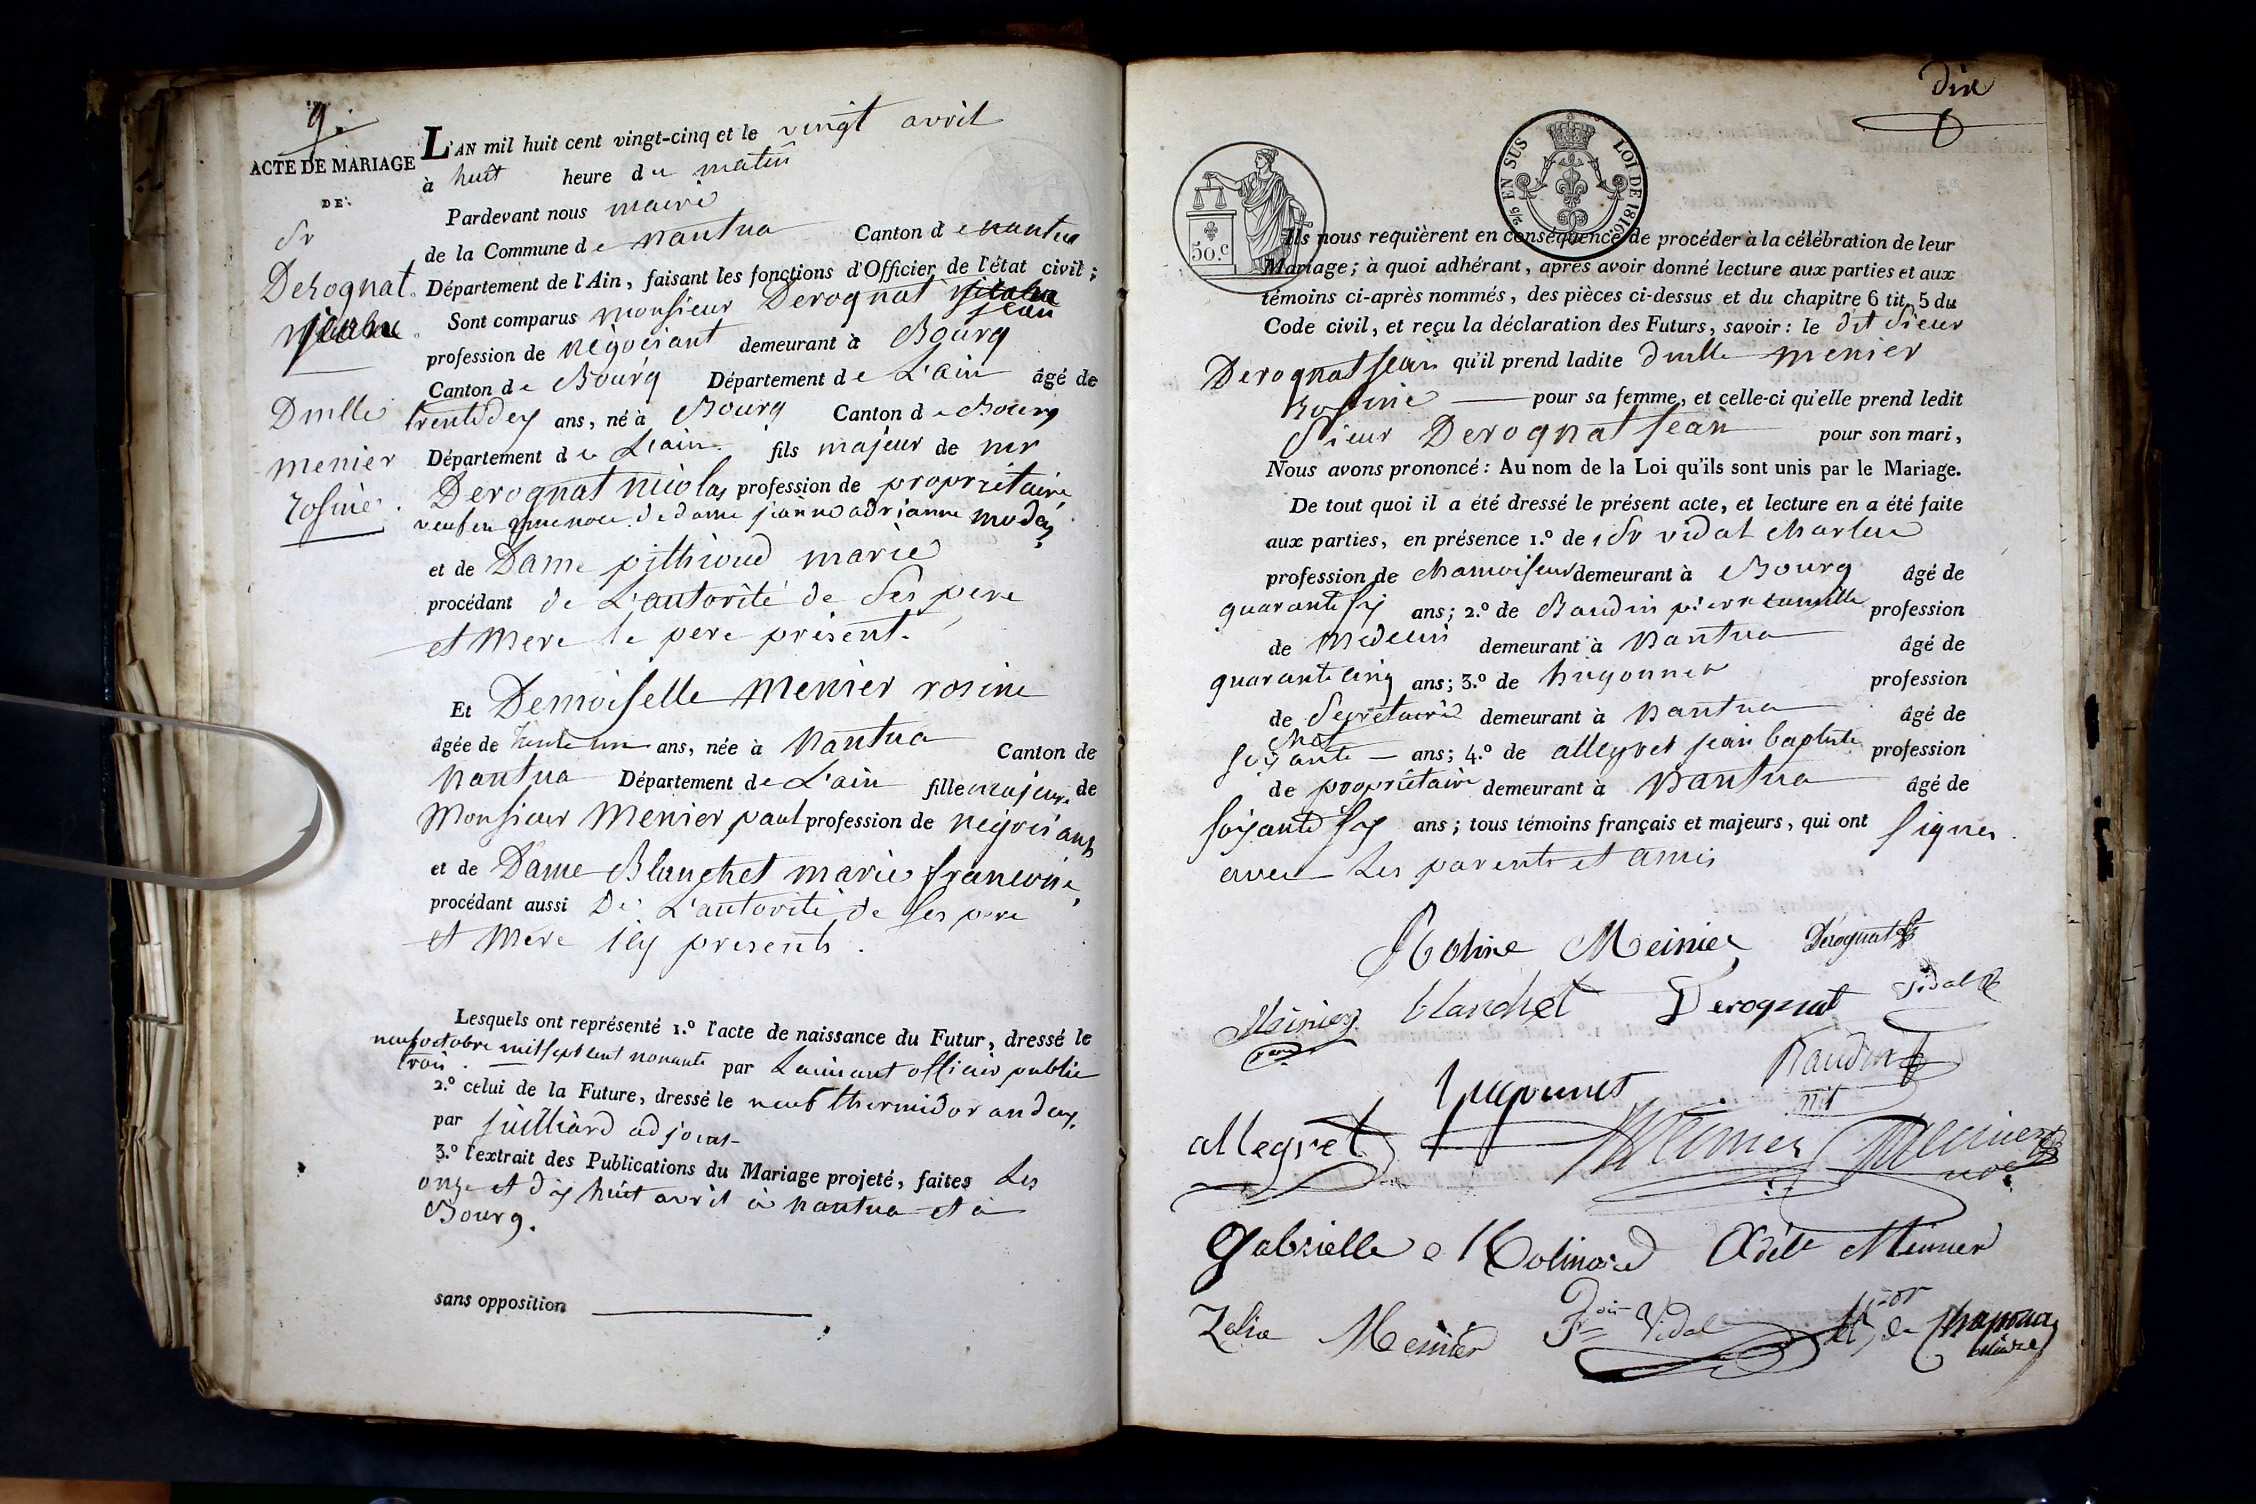 9.
ACTE DE MARIAGE
DE
Sr
Derognat
jean
Dmlle
menier
rosine.
L'AN mil huit cent vingt-cinq et le vingt avril
à huit heure du matin
Pardevant nous maire
de la Commune de nantua Canton de nantua
Département de l'Ain, faisant les fonctions d'Officier de l'état civil ;
Sont comparus monsieur Derognat nicolas jean
profession de négociant demeurant à Bourg
Canton de Bourg Département de L'ain âgé de
trentedeux ans, né à Bourg Canton de Bourg
Département de L'ain fils majeur de mr
Derognat nicolas profession de propriétaire
veuf en de dame jeanne adrianne
et de Dame pithioud marie
procédant de L'autorité de ses pere
et mere le pere présent.
Et Demoiselle menier rosine
âgée de trente un ans, née à nantua Canton de
nantua Département de L'ain fille majeure de
Monsieur Menier paul profession de négociant
et de Dame Blanchet marie francoise,
procédant aussi De L'autorité de ses pere
et mere icy presents.
Lesquels ont représenté 1.º l'acte de naissance du Futur, dressé le
neuf octobre mil sept cent nonante
trois. par officier public
2.º celui de la Future, dressé le neuf thermidor an deux.
par juilliard adjoint
3.º l'extrait des Publications du Mariage projeté, faites Les
onze et dix huit avril à nantua et à
Bourg.
sans opposition
dix
50.c
2/5 EN SUS LOI DE 1816.
Ils nous requièrent en conséquence de procéder à la célébration de leur
Mariage; à quoi adhérant, après avoir donné lecture aux parties et aux
témoins ci-après nommés, des pièces ci-dessus et du chapitre 6 tit. 5 du
Code civil, et reçu la déclaration des Futurs, savoir : le dit sieur
Derognat jean qu'il prend ladite dmlle menier
Rosine pour sa femme, et celle-ci qu'elle prend ledit
Sieur Derognat jean pour son mari,
Nous avons prononcé : Au nom de la Loi qu'ils sont unis par le Mariage.
De tout quoi il a été dressé le présent acte, et lecture en a été faite
aux parties, en présence 1.º de Sr vidal charles
profession de chamoiseur demeurant à Bourg âgé de
quarante six ans; 2.º de Baudin pierre camille profession
de Medecin demeurant à nantua âgé de
quarante cinq ans; 3.º de hugonnet profession
de Secretaire demeurant à nantua âgé de
soixante ans; 4.º de allegret jean baptiste profession
de propriétaire demeurant à nantua âgé de
soixante six ans; tous témoins français et majeurs, qui ont signer
avec Les parents et amis
Rosine Meinier Derognat
Meinier blanchet Derognat Vidal
père
Baudin
hugonnet
allegret Meinier Meinier
Gabrielle Molinard Adèle Meinier
Zelia Meinier Vidal